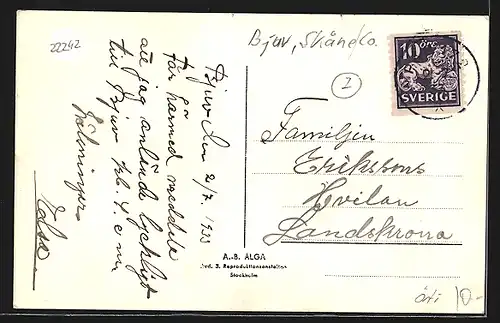 22242
Bjuv, Skåne Co.
2
10 ÖRE
SVERIGE
Bjuv den 2/7. 1933
Får härmed meddela
att jag anlände lyckligt
till Bjuv kl. 4. e m
Hälsningar
Familjen
Erikssons
Hvilan
Landskrona
A.-B. ALGA
Avd. 3. Reproduktionsanstalten
Stockholm
10-